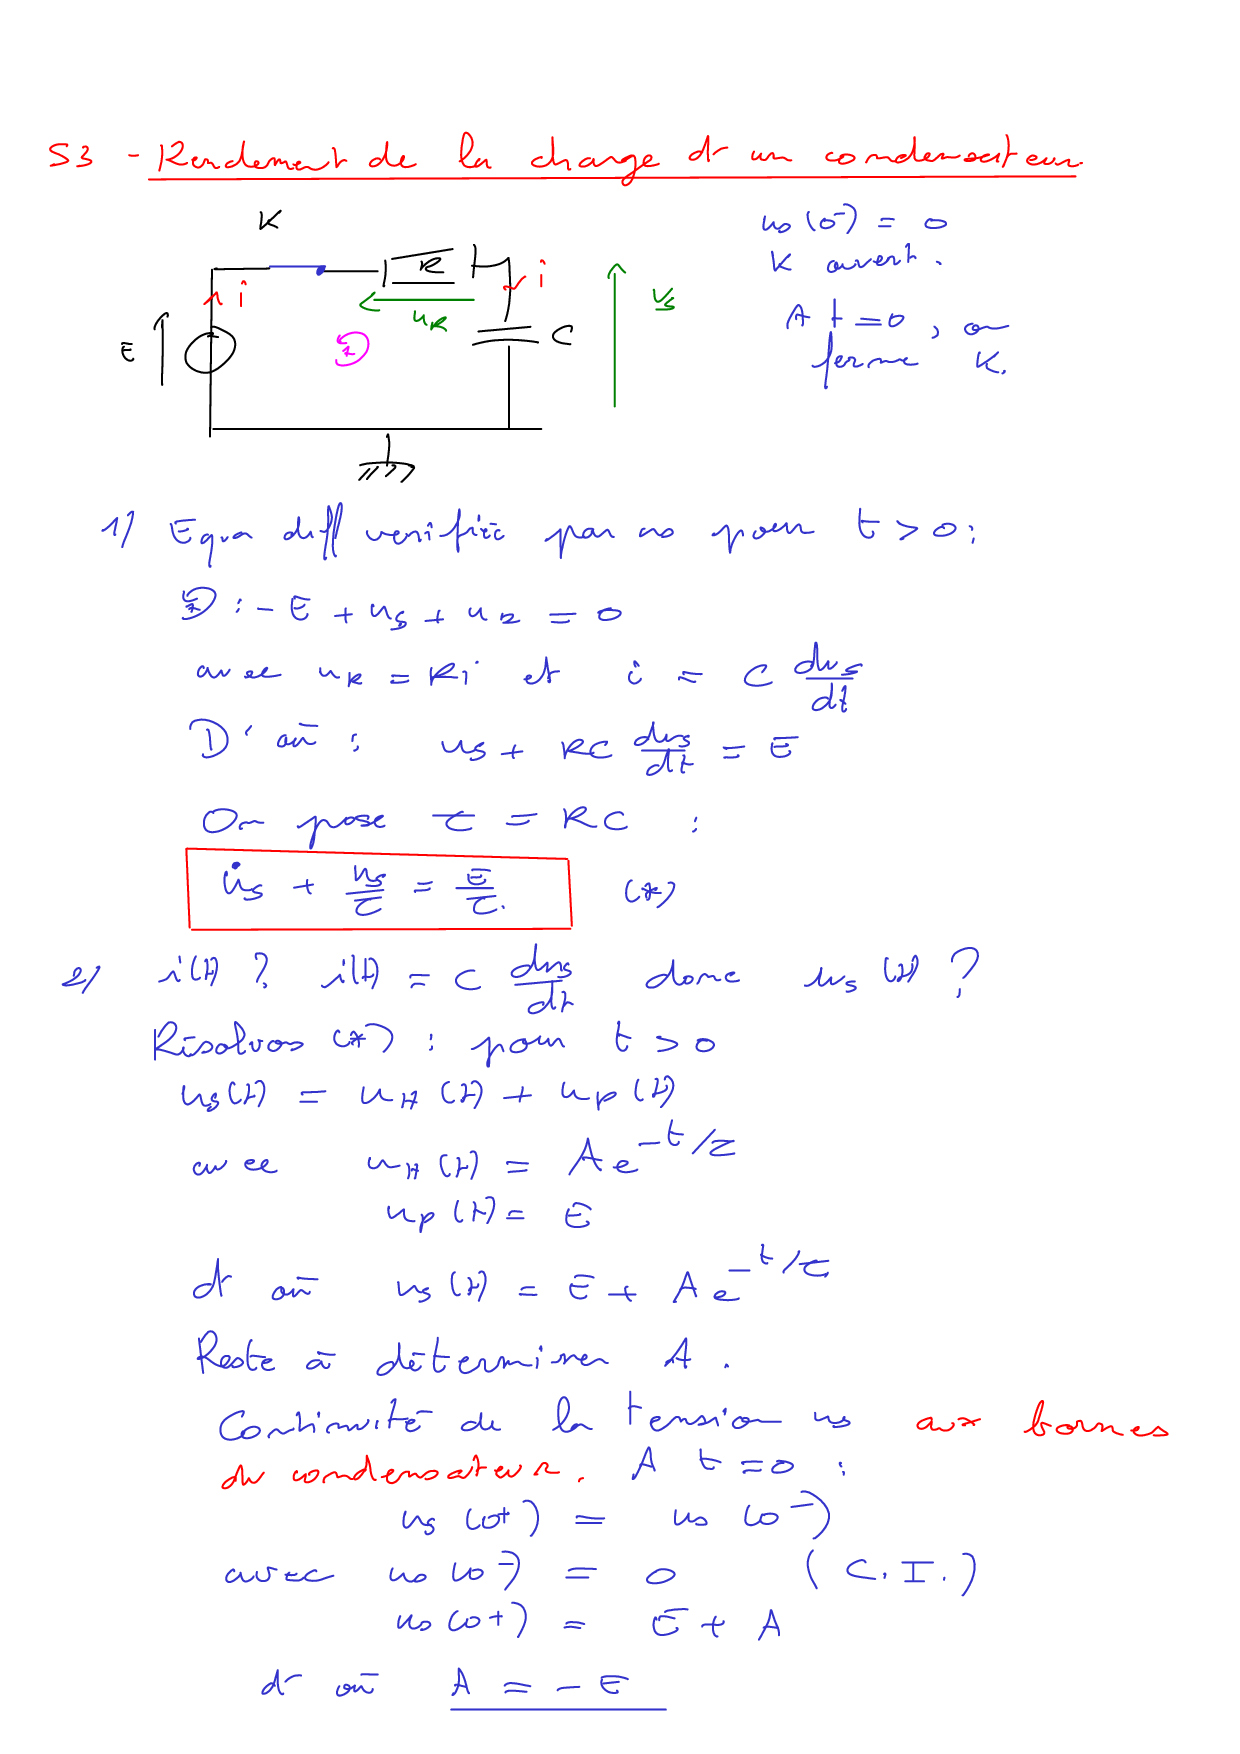 S3 - Rendement de la charge d'un condensateur
K
us(0⁻) = 0
K ouvert.
R
i
i
uR
E
C
Vs
A t = 0, on
ferme K.
1) Equa diff vérifiée par us pour t > 0 :
: - E + us + uR = 0
avec uR = Ri et i = C dus/dt
D'où : us + RC dus/dt = E
On pose τ = RC :
u̇s + us/τ = E/τ. (*)
2) i(t) ? i(t) = C dus/dt donc us(t) ?
Résolvos (*) : pour t > 0
us(t) = uH(t) + up(t)
avec uH(t) = A e^(-t/τ)
up(t) = E
d'où us(t) = E + A e^(-t/τ)
Reste à déterminer A.
Continuité de la tension us aux bornes
du condensateur. A t = 0 :
us(0⁺) = us(0⁻)
avec us(0⁻) = 0 (C.I.)
us(0⁺) = E + A
d'où A = - E